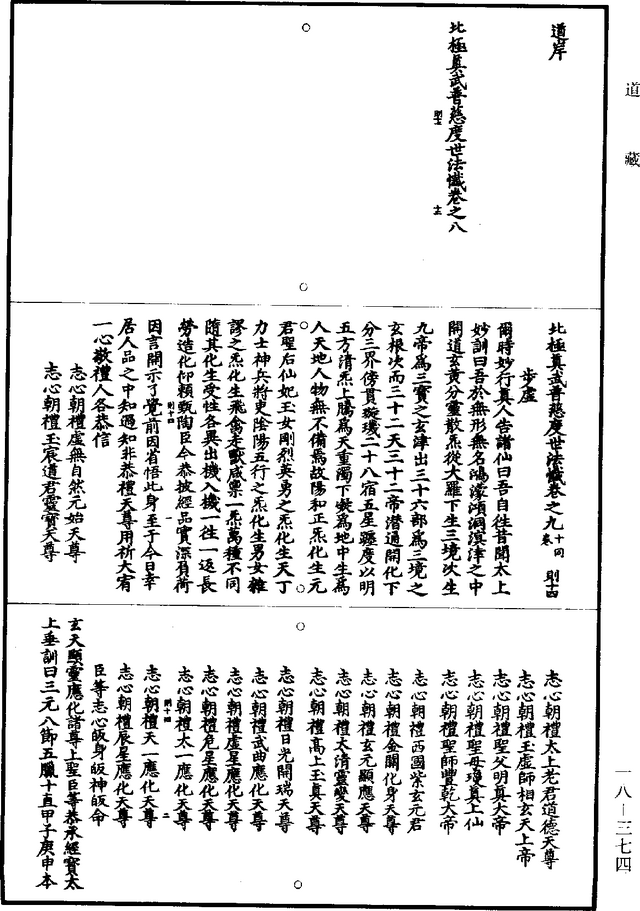 道藏
道岸
北極真武普慈度世法懺卷之八
則十三
十三
北極真武普慈度世法懺卷之九 十同卷 則十四
步虛
爾時妙行真人告諸仙曰吾自往昔聞太上
妙訓曰吾於無形無名鴻濛澒洞溟涬之中
開道玄黃分靈散炁從大羅下生三境次生
九帝爲三寶之玄津出三十六部爲三境之
玄根次而三十二天三十二帝潜通開化下
分三界傍貫璇璣二十八宿五星躔度以明
五方清炁上騰爲天重濁下凝爲地中生爲
人天地人物無不備焉故陽和正炁化生元
君聖后仙妃玉女剛烈英勇之炁化生天丁
力士神兵將吏陰陽五行之炁化生男女雜
謬之炁化生飛禽走獸咸稟一炁萬種不同
隨其化生受性各異出機入機一往一返長
勞造化仰頼甄陶臣今恭披經品實深負荷
則十四
因言開示了覺前因省悟此身至于今日幸
居人品之中知過知非恭禮天尊用祈大宥
一心敬禮人各恭信
志心朝禮虛無自然元始天尊
志心朝禮玉宸道君靈寶天尊
志心朝禮太上老君道德天尊
志心朝禮玉虛師相玄天上帝
志心朝禮聖父明真大帝
志心朝禮聖母瓊真上仙
志心朝禮聖師豐乾大帝
志心朝禮西國紫玄元君
志心朝禮金闕化身天尊
志心朝禮玄元顯應天尊
志心朝禮太清靈變天尊
志心朝禮高上玉真天尊
志心朝禮日光開瑞天尊
志心朝禮武曲應化天尊
志心朝禮虛星應化天尊
志心朝禮危星應化天尊
志心朝禮太一應化天尊
則十四
二
志心朝禮天一應化天尊
志心朝禮辰星應化天尊
臣等志心皈身皈神皈命
玄天顯靈應化諸尊上聖臣等恭承經寶太
上垂訓曰三元八節五臘十直甲子庚申本
一八—三七四